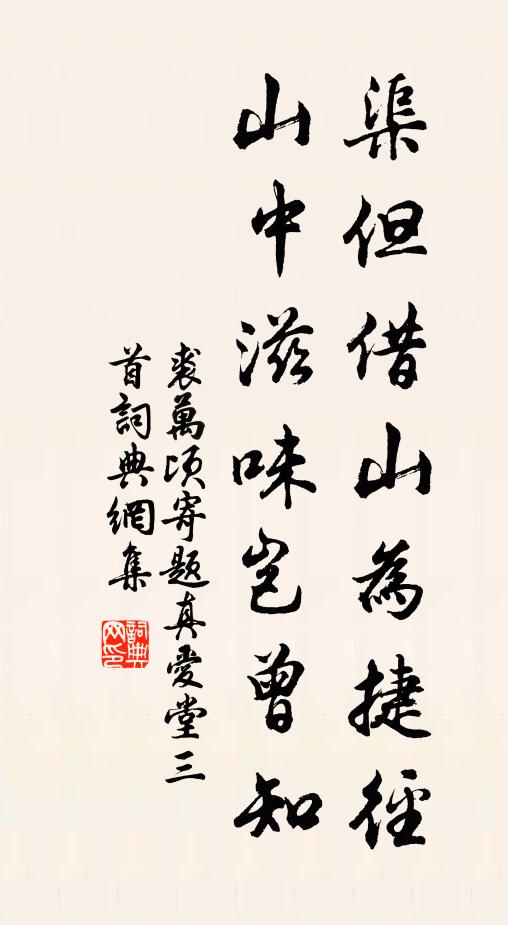 渠但借山為捷徑
山中滋味豈曾知
裘萬頃寄題真愛堂三
首詞典網集
詞典
网印